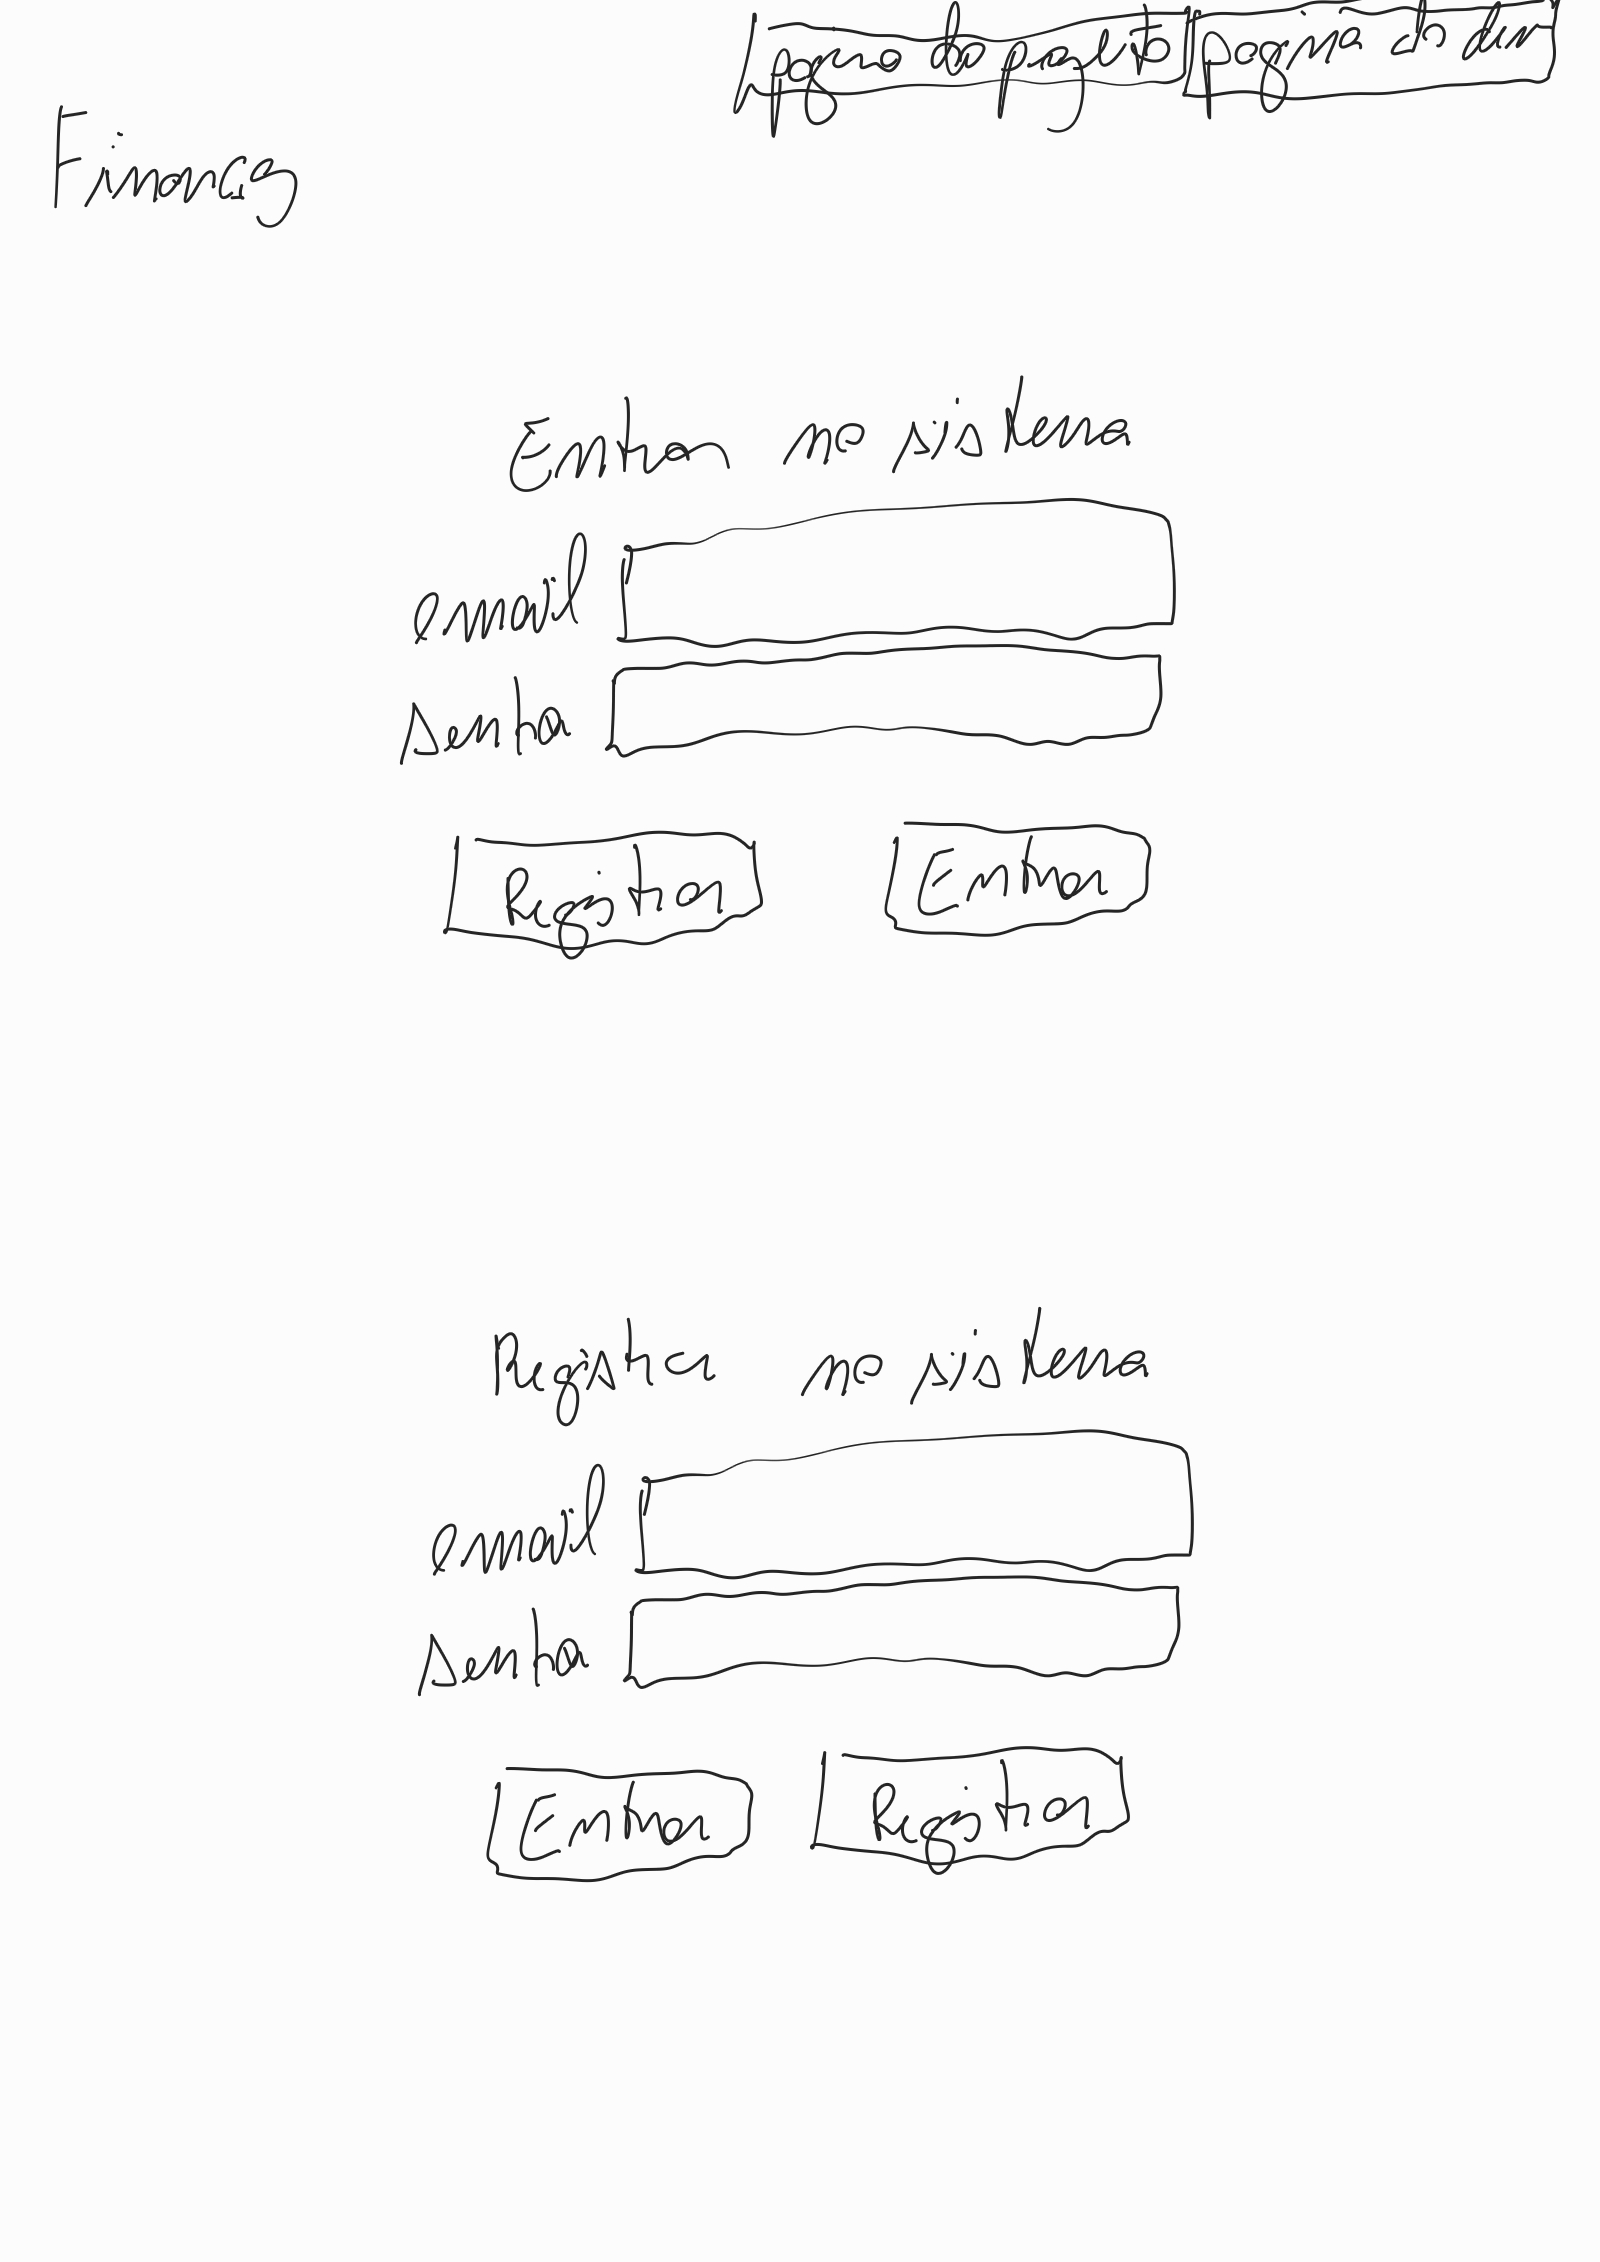 pagina do projeto pagina do dev
Finanças
Entrar no sistema
email
senha
Registrar Entrar
Registrar no sistema
email
senha
Entrar Registrar